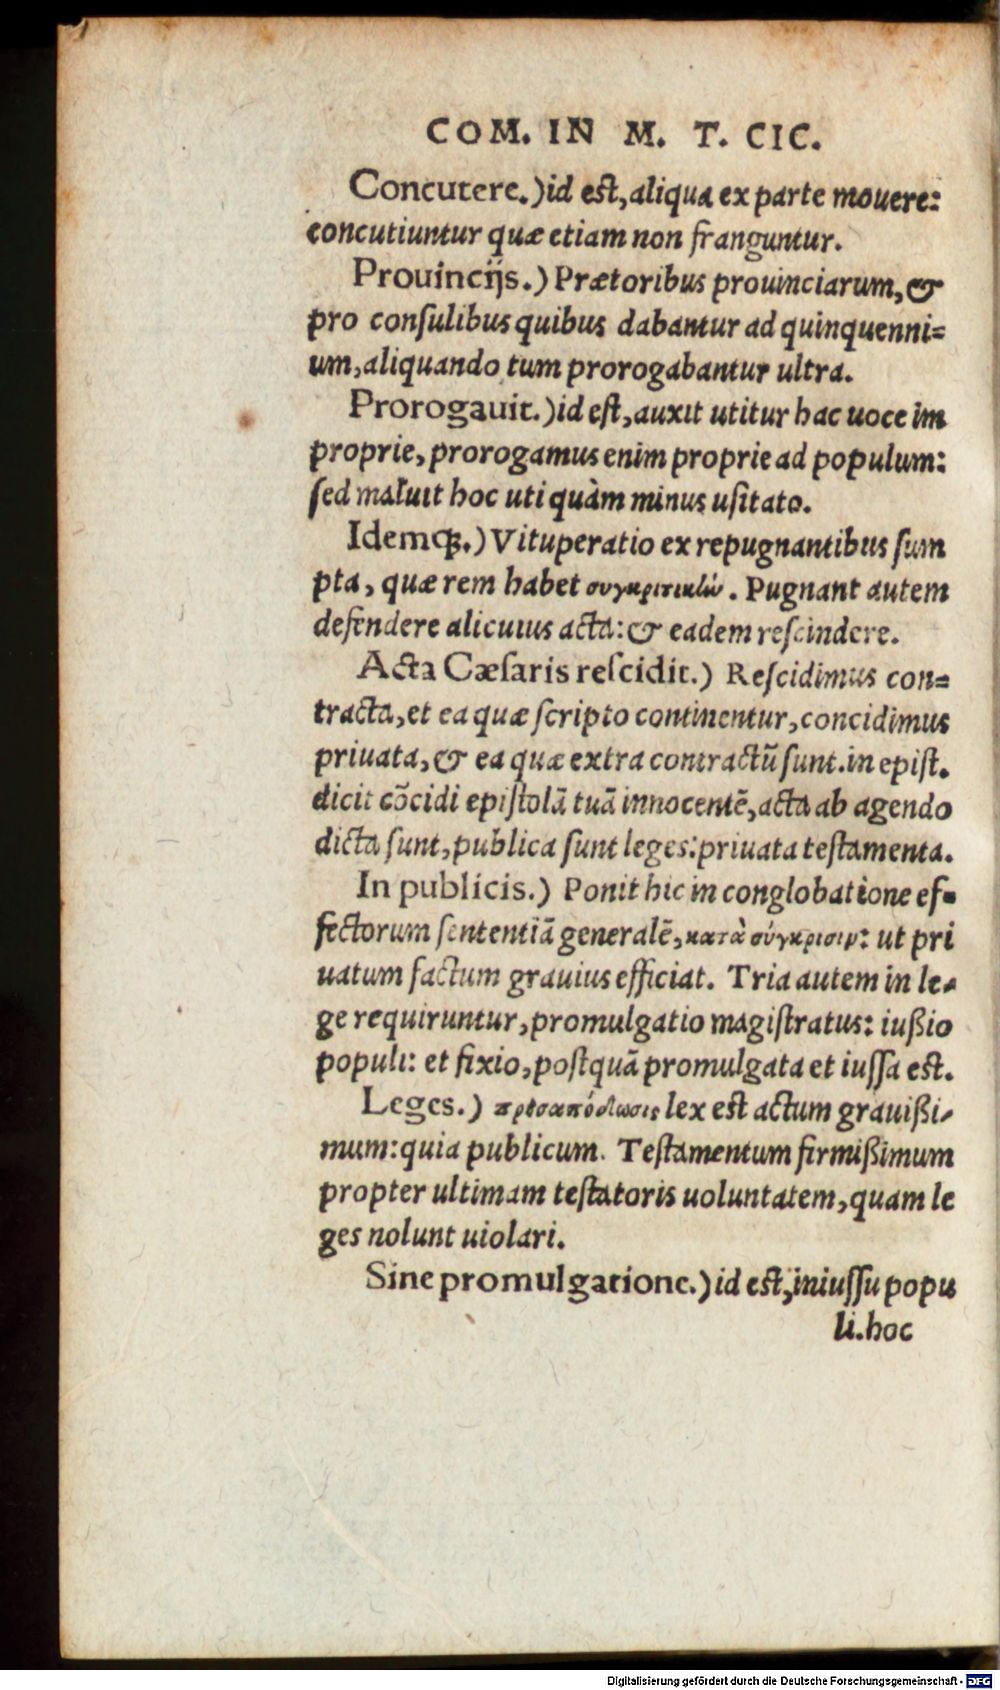 COM. IN M. T. CIC.
Concutere.) id est, aliqua ex parte mouere:
concutiuntur quæ etiam non franguntur.
Prouincijs.) Prætoribus prouinciarum, &
pro consulibus quibus dabantur ad quinquenni=
um, aliquando tum prorogabantur ultra.
Prorogauit.) id est, auxit utitur hac uoce im
proprie, prorogamus enim proprie ad populum:
sed maluit hoc uti quàm minus usitato.
Idemqꝫ.) Vituperatio ex repugnantibus sum
pta, quæ rem habet συγκριτικὼ. Pugnant autem
defendere alicuius acta: & eadem rescindere.
Acta Cæsaris rescidit.) Rescidimus con=
tracta, et ea quæ scripto continentur, concidimus
priuata, & ea quæ extra contractũ sunt. in epist.
dicit cõcidi epistolã tuã innocentẽ, acta ab agendo
dicta sunt, publica sunt leges: priuata testamenta.
In publicis.) Ponit hic in conglobatione ef=
fectorum sententiã generalẽ, κατὰ σύγκρισιν: ut pri
uatum factum grauius efficiat. Tria autem in le=
ge requiruntur, promulgatio magistratus: iußio
populi: et fixio, postquã promulgata et iussa est.
Leges.) προσαπόδωσις lex est actum grauißi=
mum: quia publicum. Testamentum firmißimum
propter ultimam testatoris uoluntatem, quam le
ges nolunt uiolari.
Sine promulgatione.) id est, iniussu popu
li. hoc
Digitalisierung gefördert durch die Deutsche Forschungsgemeinschaft - DFG